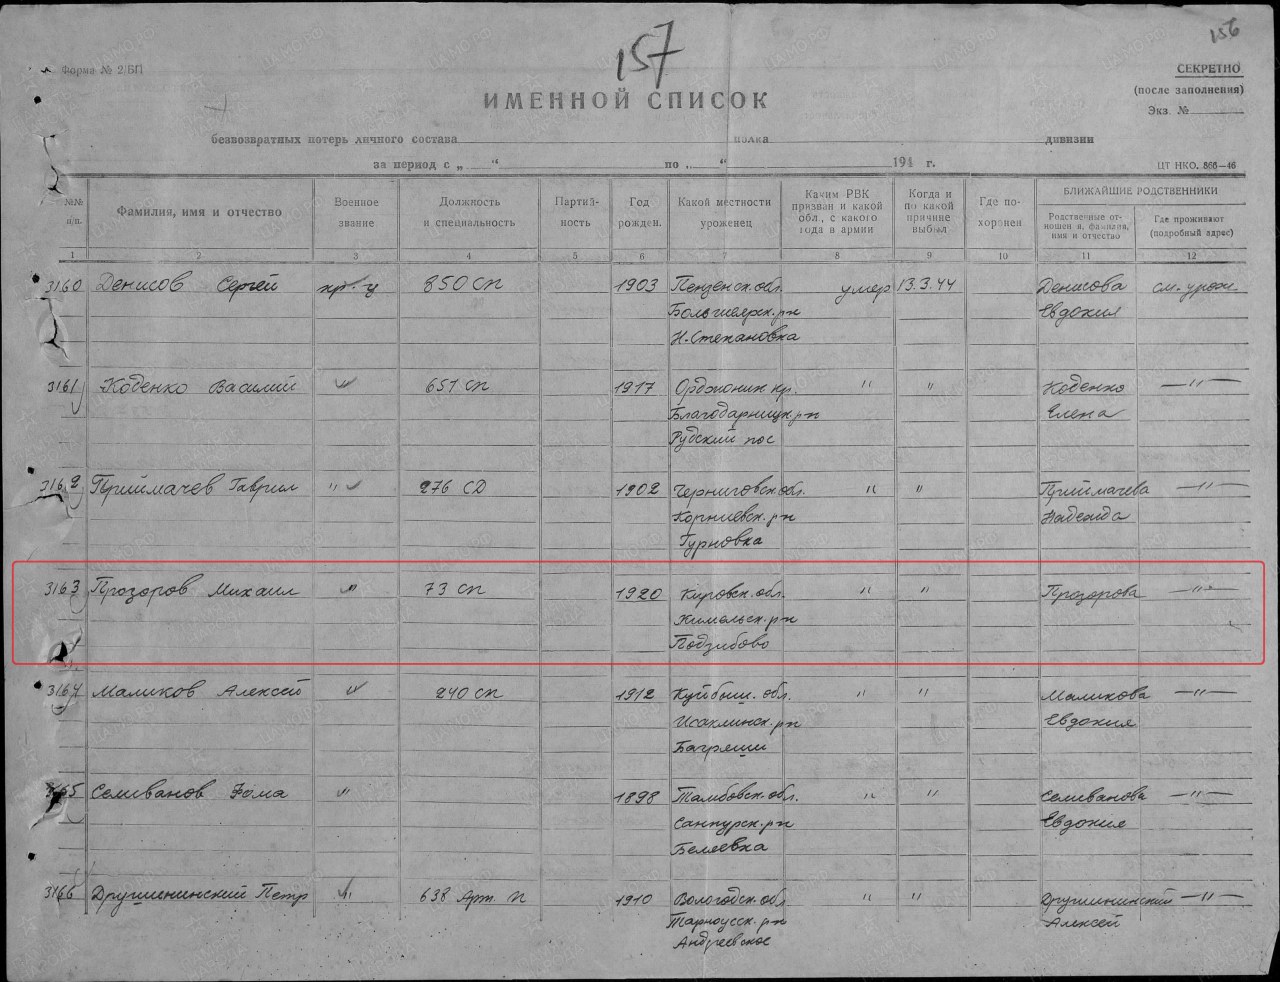 157
156
Форма № 2/БП
СЕКРЕТНО
(после заполнения)
Экз. №
ИМЕННОЙ СПИСОК
безвозвратных потерь личного состава полка дивизии
за период с „ “ по „ “ 194 г.
ЦТ НКО. 866—46
№№ п/п.
Фамилия, имя и отчество
Военное звание
Должность и специальность
Партийность
Год рожден.
Какой местности уроженец
Каким РВК призван и какой обл., с какого года в армии
Когда и по какой причине выбыл
Где похоронен
БЛИЖАЙШИЕ РОДСТВЕННИКИ
Родственные отношения, фамилия, имя и отчество
Где проживают (подробный адрес)
1 2 3 4 5 6 7 8 9 10 11 12
3160 Денисов Сергей кр-ц 850 сп 1903 Пензенск. обл. умер 13.3.44 Денисова см. урож.
Евдокия
Н. Степановка
3161 Коденко Василий " 651 сп 1917 Орджоник. кр. " " Коденко —"—
Благодарницк. рн Елена
Рудский пос
3162 Приймачев Гаврил " 276 СД 1902 Черниговск. обл. " " Приймачева —"—
Корниевск. рн Надежда
Гурновка
3163 Прозоров Михаил " 73 сп 1920 Кировск. обл. " " Прозорова —"—
Кимельск. рн
Подзибово
3164 Маликов Алексей " 240 сп 1912 Куйбыш. обл. " " Маликова —"—
Исаклинск. рн Евдокия
Багряши
3165 Селиванов Фома " 1898 Тамбовск. обл. " " Селиванова —"—
Сампурск. рн Евдокия
Беляевка
3166 Другшининский Петр " 638 Арт. п 1910 Вологодск. обл " " Другшининский —"—
Тарногск. рн Алексей
Андреевское